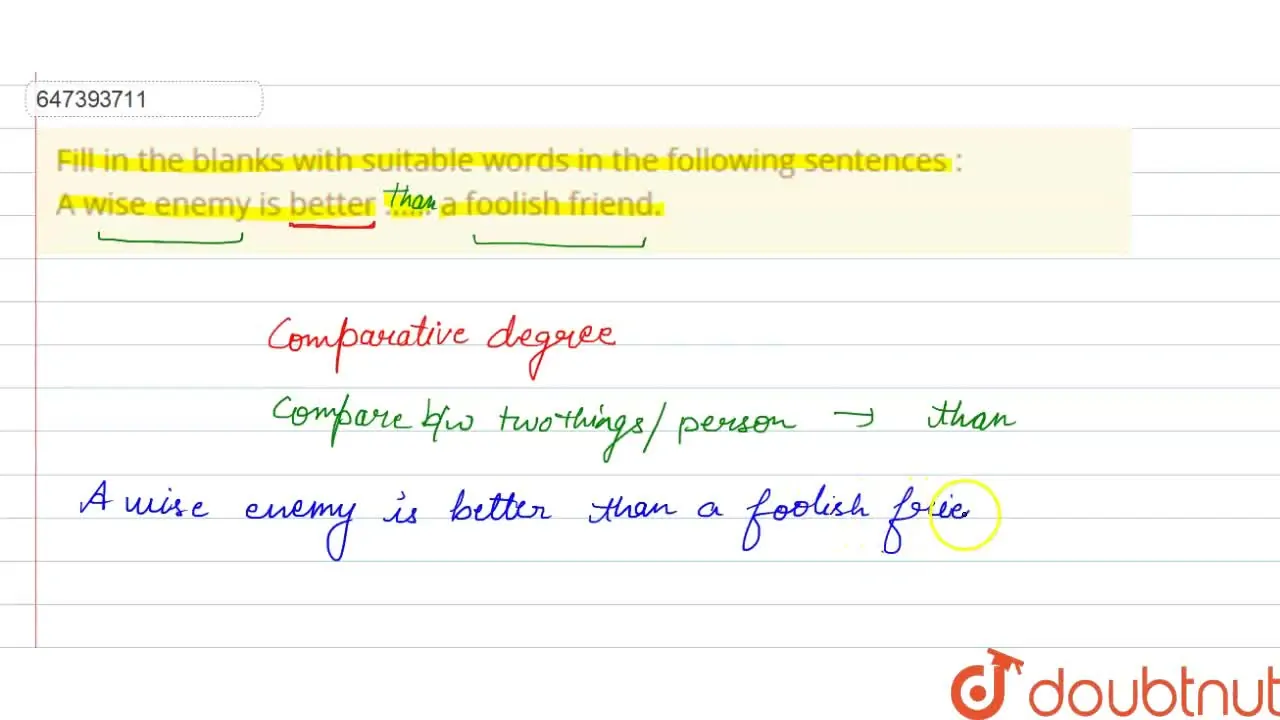 647393711
Fill in the blanks with suitable words in the following sentences :
A wise enemy is better ...than... a foolish friend.
Comparative degree
Compare b/w two things/person → than
A wise enemy is better than a foolish frie
doubtnut